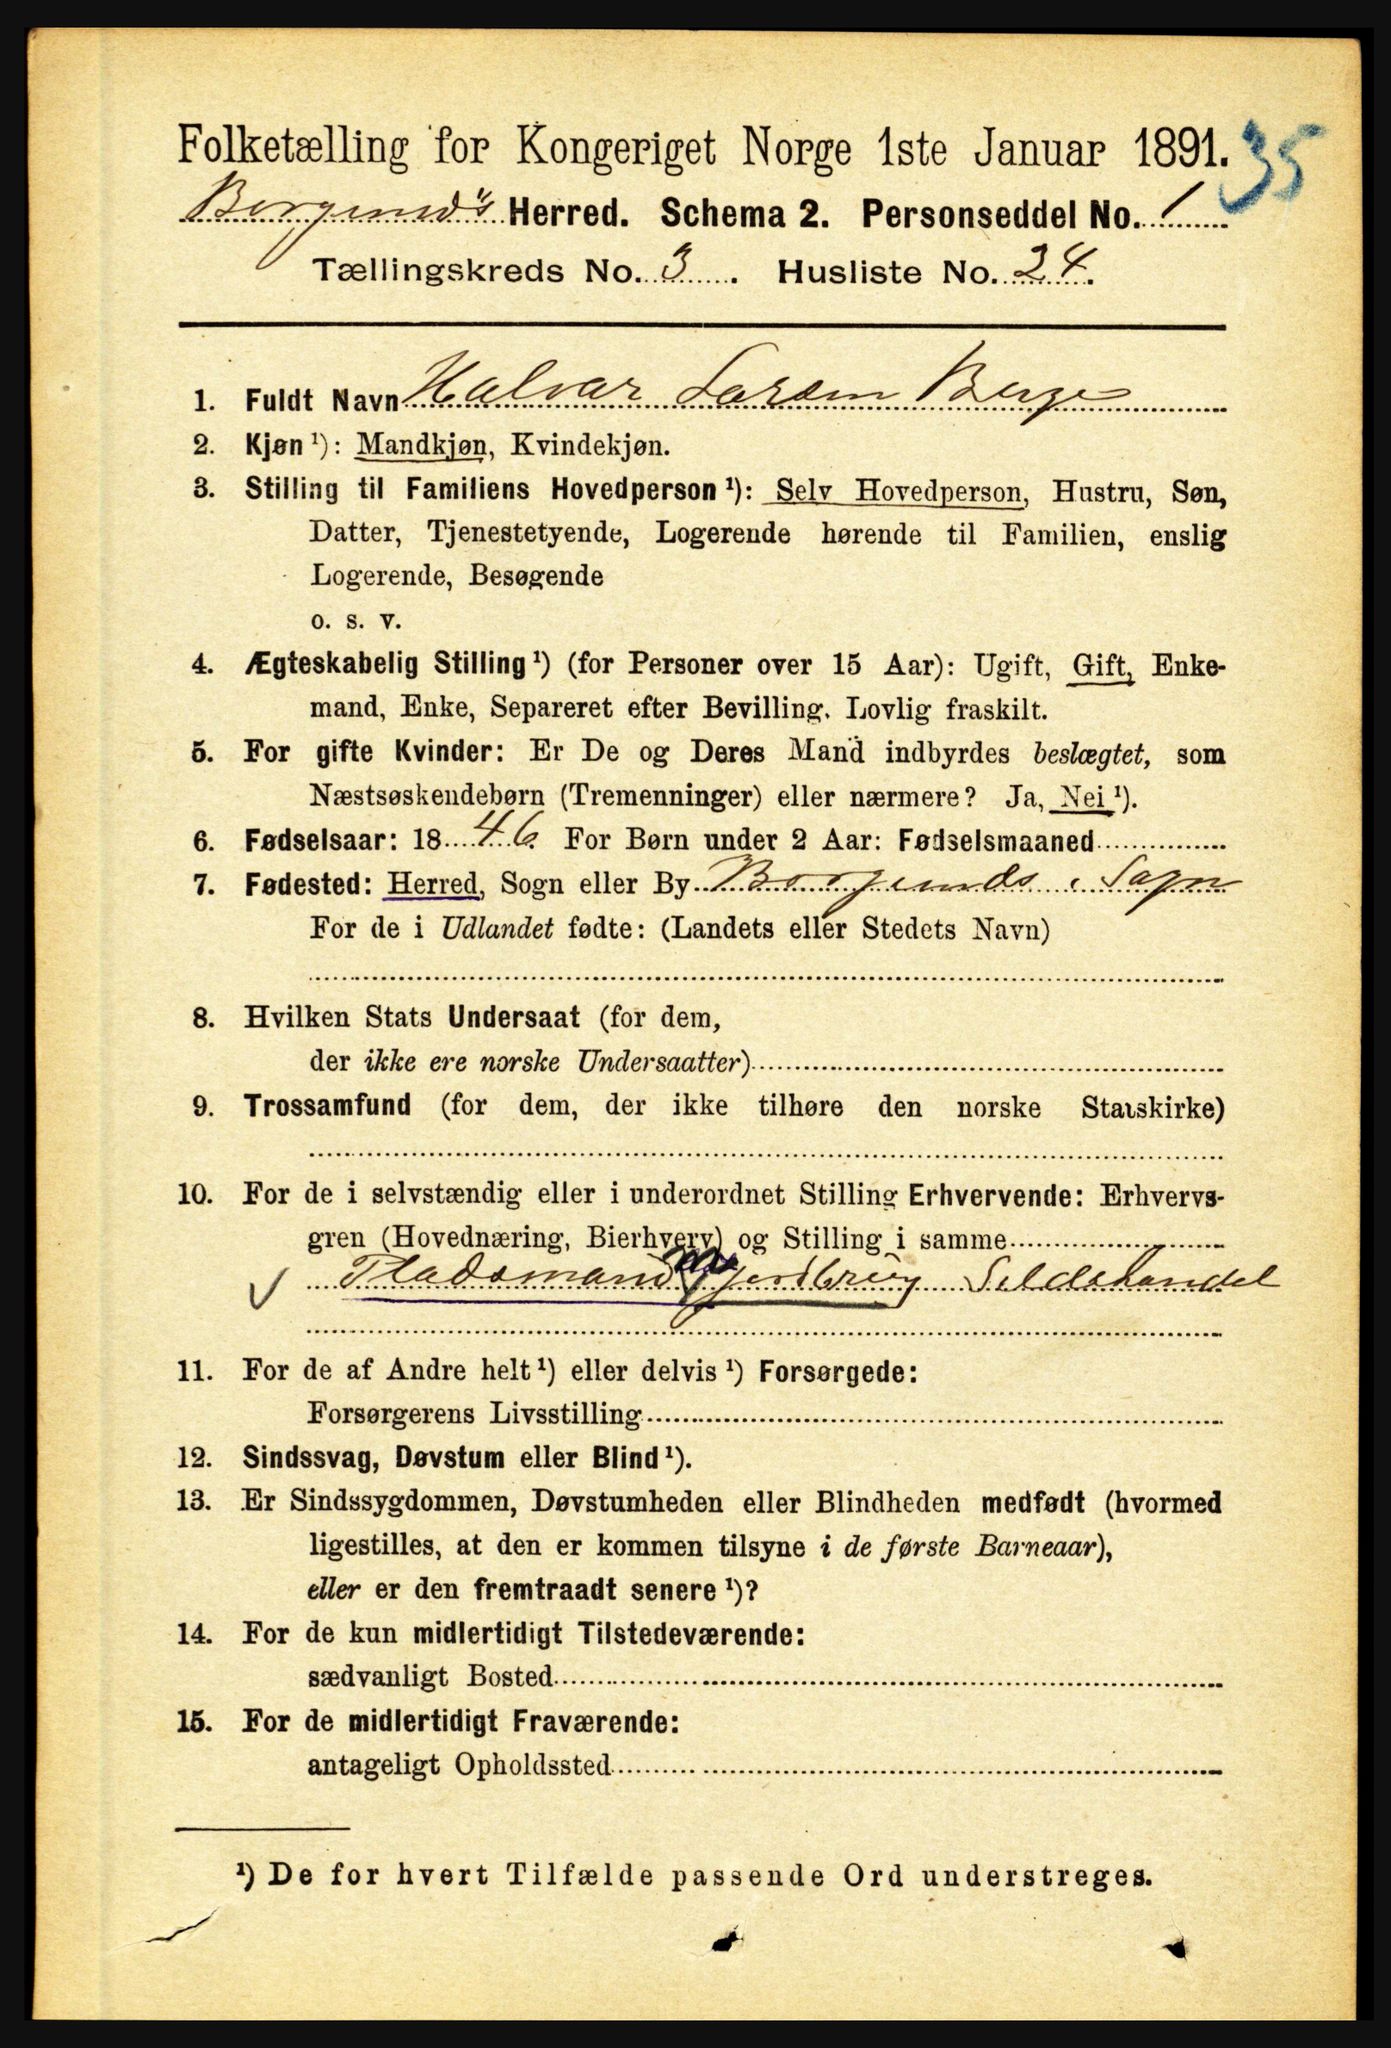 Folketælling for Kongeriget Norge 1ste Januar 1891.
35
Borgund's Herred. Schema 2. Personseddel No. 1
Tællingskreds No. 3. Husliste No. 24.
1. Fuldt Navn Halvar Larsen Berge
2. Kjøn ¹): Mandkjøn, Kvindekjøn.
3. Stilling til Familiens Hovedperson ¹): Selv Hovedperson, Hustru, Søn,
Datter, Tjenestetyende, Logerende hørende til Familien, enslig
Logerende, Besøgende
o. s. v.
4. Ægteskabelig Stilling ¹) (for Personer over 15 Aar): Ugift, Gift, Enke-
mand, Enke, Separeret efter Bevilling. Lovlig fraskilt.
5. For gifte Kvinder: Er De og Deres Mand indbyrdes beslægtet, som
Næstsøskendebørn (Tremenninger) eller nærmere? Ja, Nei ¹).
6. Fødselsaar: 1846 For Børn under 2 Aar: Fødselsmaaned
7. Fødested: Herred, Sogn eller By Borgunds i Sogn
For de i Udlandet fødte: (Landets eller Stedets Navn)
8. Hvilken Stats Undersaat (for dem,
der ikke ere norske Undersaatter)
9. Trossamfund (for dem, der ikke tilhøre den norske Statskirke)
10. For de i selvstændig eller i underordnet Stilling Erhvervende: Erhvervs-
gren (Hovednæring, Bierhverv) og Stilling i samme
Pladsmand m jordbrug Sildehandel
11. For de af Andre helt ¹) eller delvis ¹) Forsørgede:
Forsørgerens Livsstilling
12. Sindssvag, Døvstum eller Blind ¹).
13. Er Sindssygdommen, Døvstumheden eller Blindheden medfødt (hvormed
ligestilles, at den er kommen tilsyne i de første Barneaar),
eller er den fremtraadt senere ¹)?
14. For de kun midlertidigt Tilstedeværende:
sædvanligt Bosted
15. For de midlertidigt Fraværende:
antageligt Opholdssted
¹) De for hvert Tilfælde passende Ord understreges.